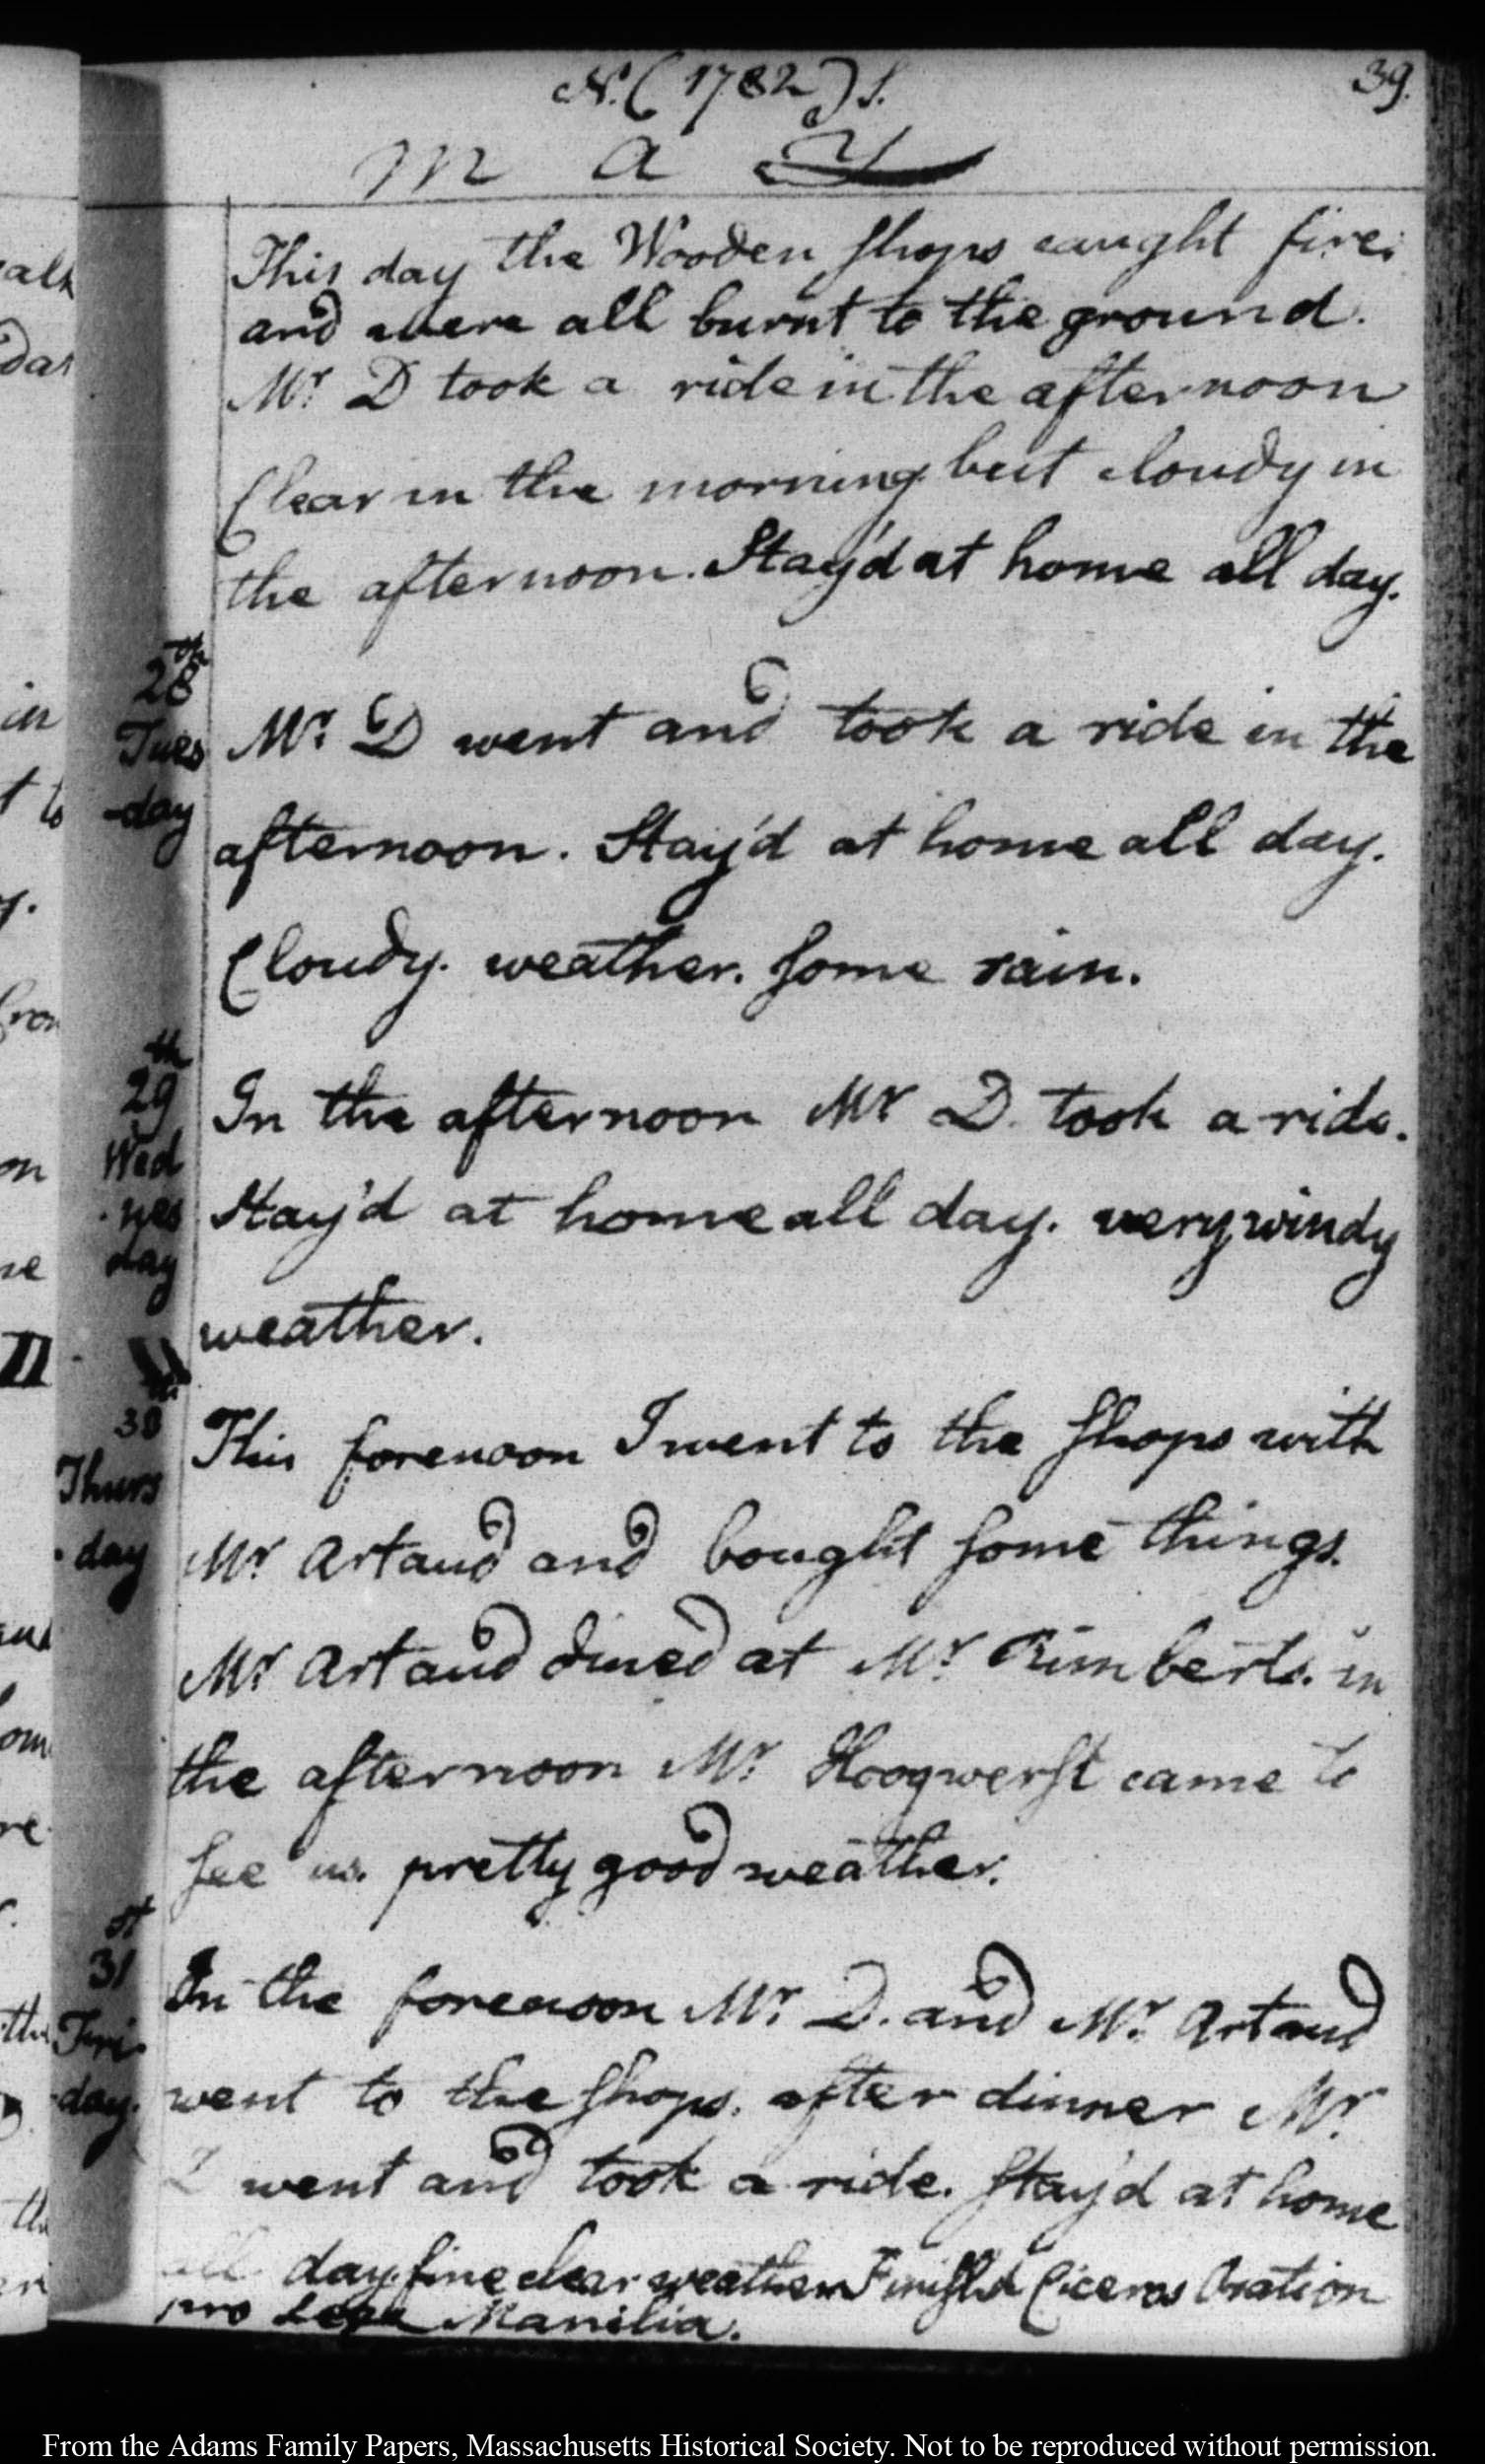 N. (1782) S.
39.
May
This day the Wooden shops caught fire;
and were all burnt to the ground.
Mr D took a ride in the afternoon
Clear in the morning but cloudy in
the afternoon. Stay'd at home all day.
28th
Tues
-day
Mr. D went and took a ride in the
afternoon. Stay'd at home all day.
Cloudy. weather. some rain.
29th
Wed
-nes
day
In the afternoon Mr D. took a ride.
Stay'd at home all day. very windy
weather.
30
Thurs
-day
This forenoon I went to the shops with
Mr Artaud and bought some things.
Mr Artaud dined at Mr Rimberts. in
the afternoon Mr Hoogwerst came to
see us. pretty good weather.
31st
Fri-
-day.
In the forenoon Mr. D. and Mr. Artaud
went to the shops. after dinner Mr.
D went and took a ride. Stay'd at home
all day. fine clear weather Finish'd Ciceros Oration
pro Lege Manilia.
alk
in
t to
y.
on
II
om
re
From the Adams Family Papers, Massachusetts Historical Society. Not to be reproduced without permission.